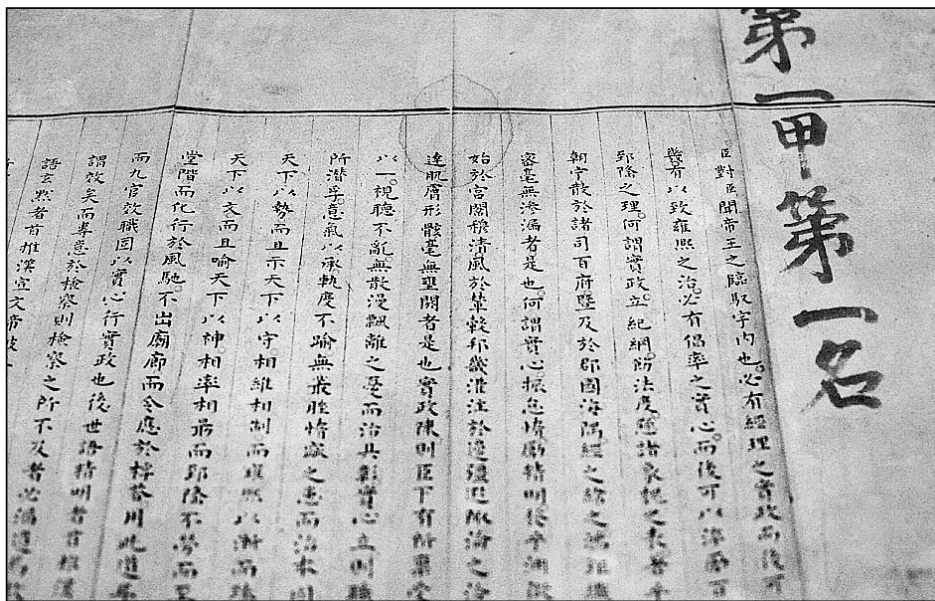 第一甲第一名
臣對臣聞帝王之臨馭宇內也必有經理之實政而後可
幾有以致雍熙之治必有倡率之實心而後可以淬勵百
郅隆之理何謂實政立紀綱飭法度懸諸象魏之表著乎
朝宁散於諸司百府暨及於郡國海隅經之緯之鴻鉅纖
密毫無滲漏者是也何謂實心振怠惰勵精明發乎淵微
始於宮闈穆清風於輦轂邦畿灌注於邊疆遐陬淪之洽
達肌膚形骸毫無壅閼者是也實政陳則臣下有所稟受
以一視聽不亂無散漫飄離之憂而治具彰實心立則職
所潛孚意氣以承軌度不踰無叢脞惰窳之患而治本固
天下以勢而且示天下以守相維相制而雍熙以漸而臻
天下以文而且喻天下以神相率相勖而郅隆不勞而至
堂階而化行於風馳不出廟廊而令應於桴答用此道耳
而九官效職固以實心行實政也後世語精明者首推漢
謂效矣而專意於檢察則檢察之所不及者必漏遺焉
語玄默者首推漢